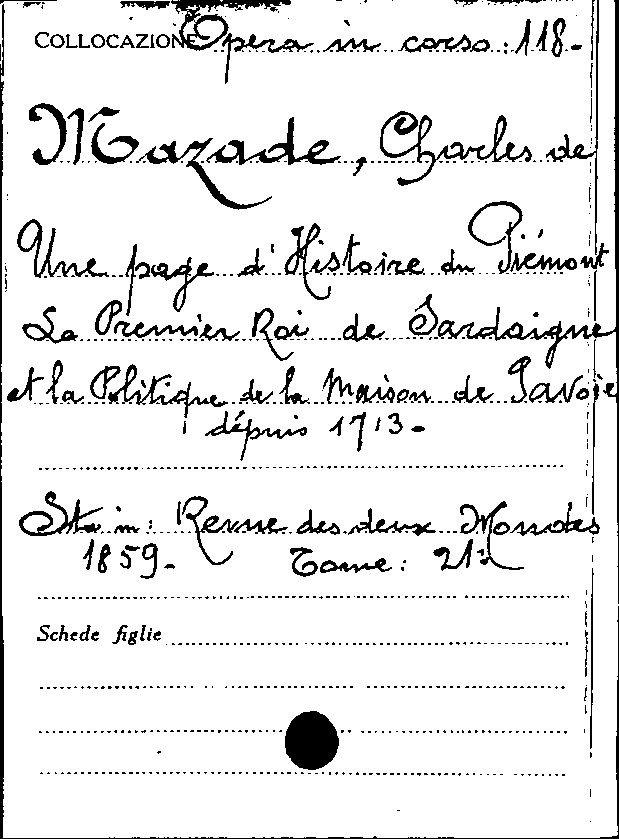 COLLOCAZIONE Opera in corso: 118-
Mazade, Charles de
Une page d'Histoire du Piémont
Le Premier Roi de Sardaigne
et la Politique de la Maison de Savoie
dépuis 1713-
Sta in: Revue des deux Mondes
1859- Tome: 21:
Schede figlie